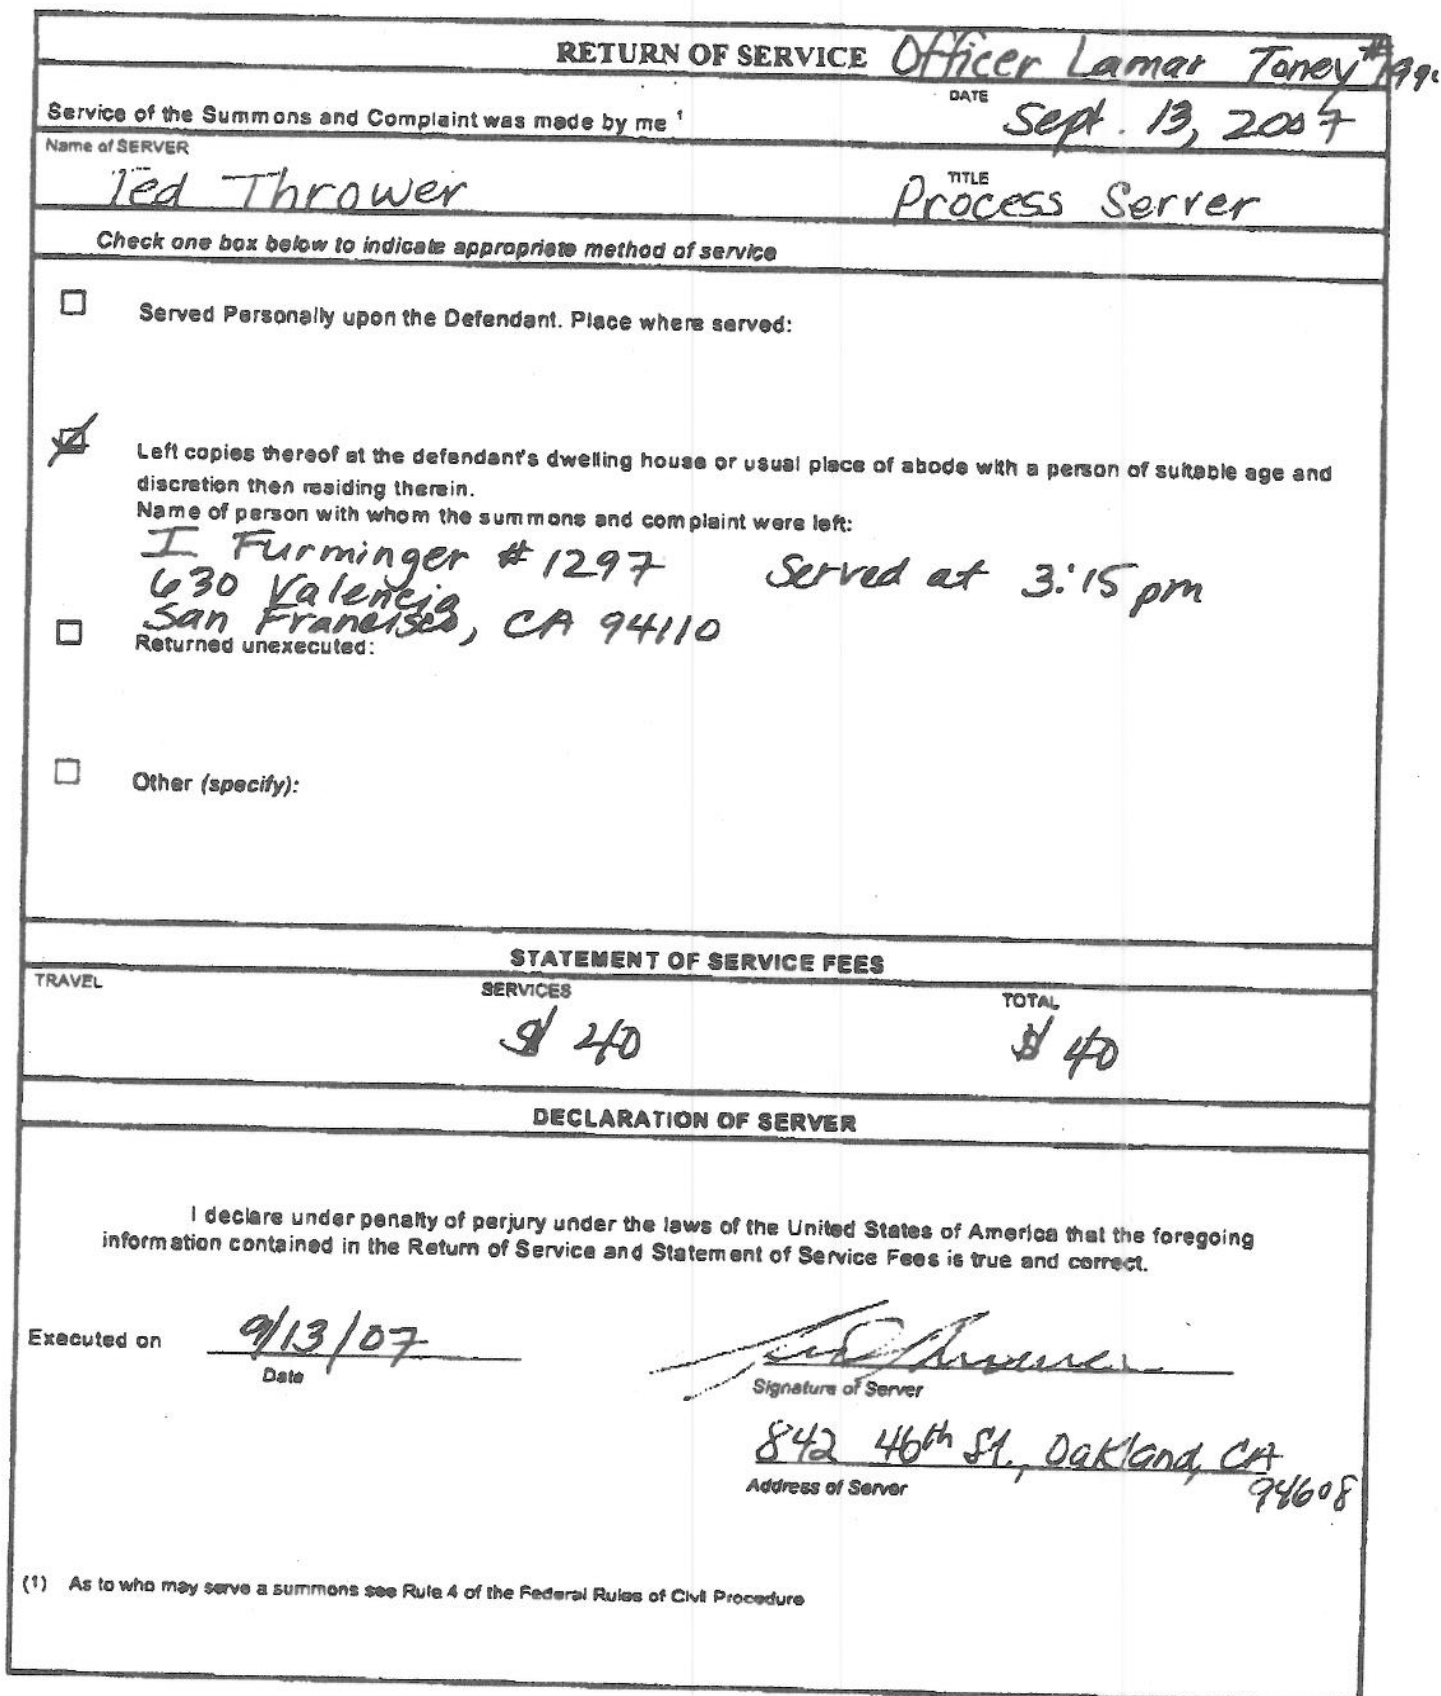 RETURN OF SERVICE Officer Lamar Toney
DATE
Service of the Summons and Complaint was made by me 1
Sept. 13, 2007
Name of SERVER
Ted Thrower
TITLE
Process Server
Check one box below to indicate appropriate method of service
Served Personally upon the Defendant. Place where served:
Left copies thereof at the defendant's dwelling house or usual place of abode with a person of suitable age and
discretion then residing therein.
Name of person with whom the summons and complaint were left:
I Furminger # 1297 Served at 3:15 pm
630 Valencia
San Francisco, CA 94110
Returned unexecuted:
Other (specify):
STATEMENT OF SERVICE FEES
TRAVEL SERVICES TOTAL
$ 40 $ 40
DECLARATION OF SERVER
I declare under penalty of perjury under the laws of the United States of America that the foregoing
information contained in the Return of Service and Statement of Service Fees is true and correct.
Executed on 9/13/07
Date
Signature of Server
842 46th St., Oakland, CA
94608
Address of Server
(1) As to who may serve a summons see Rule 4 of the Federal Rules of Civil Procedure